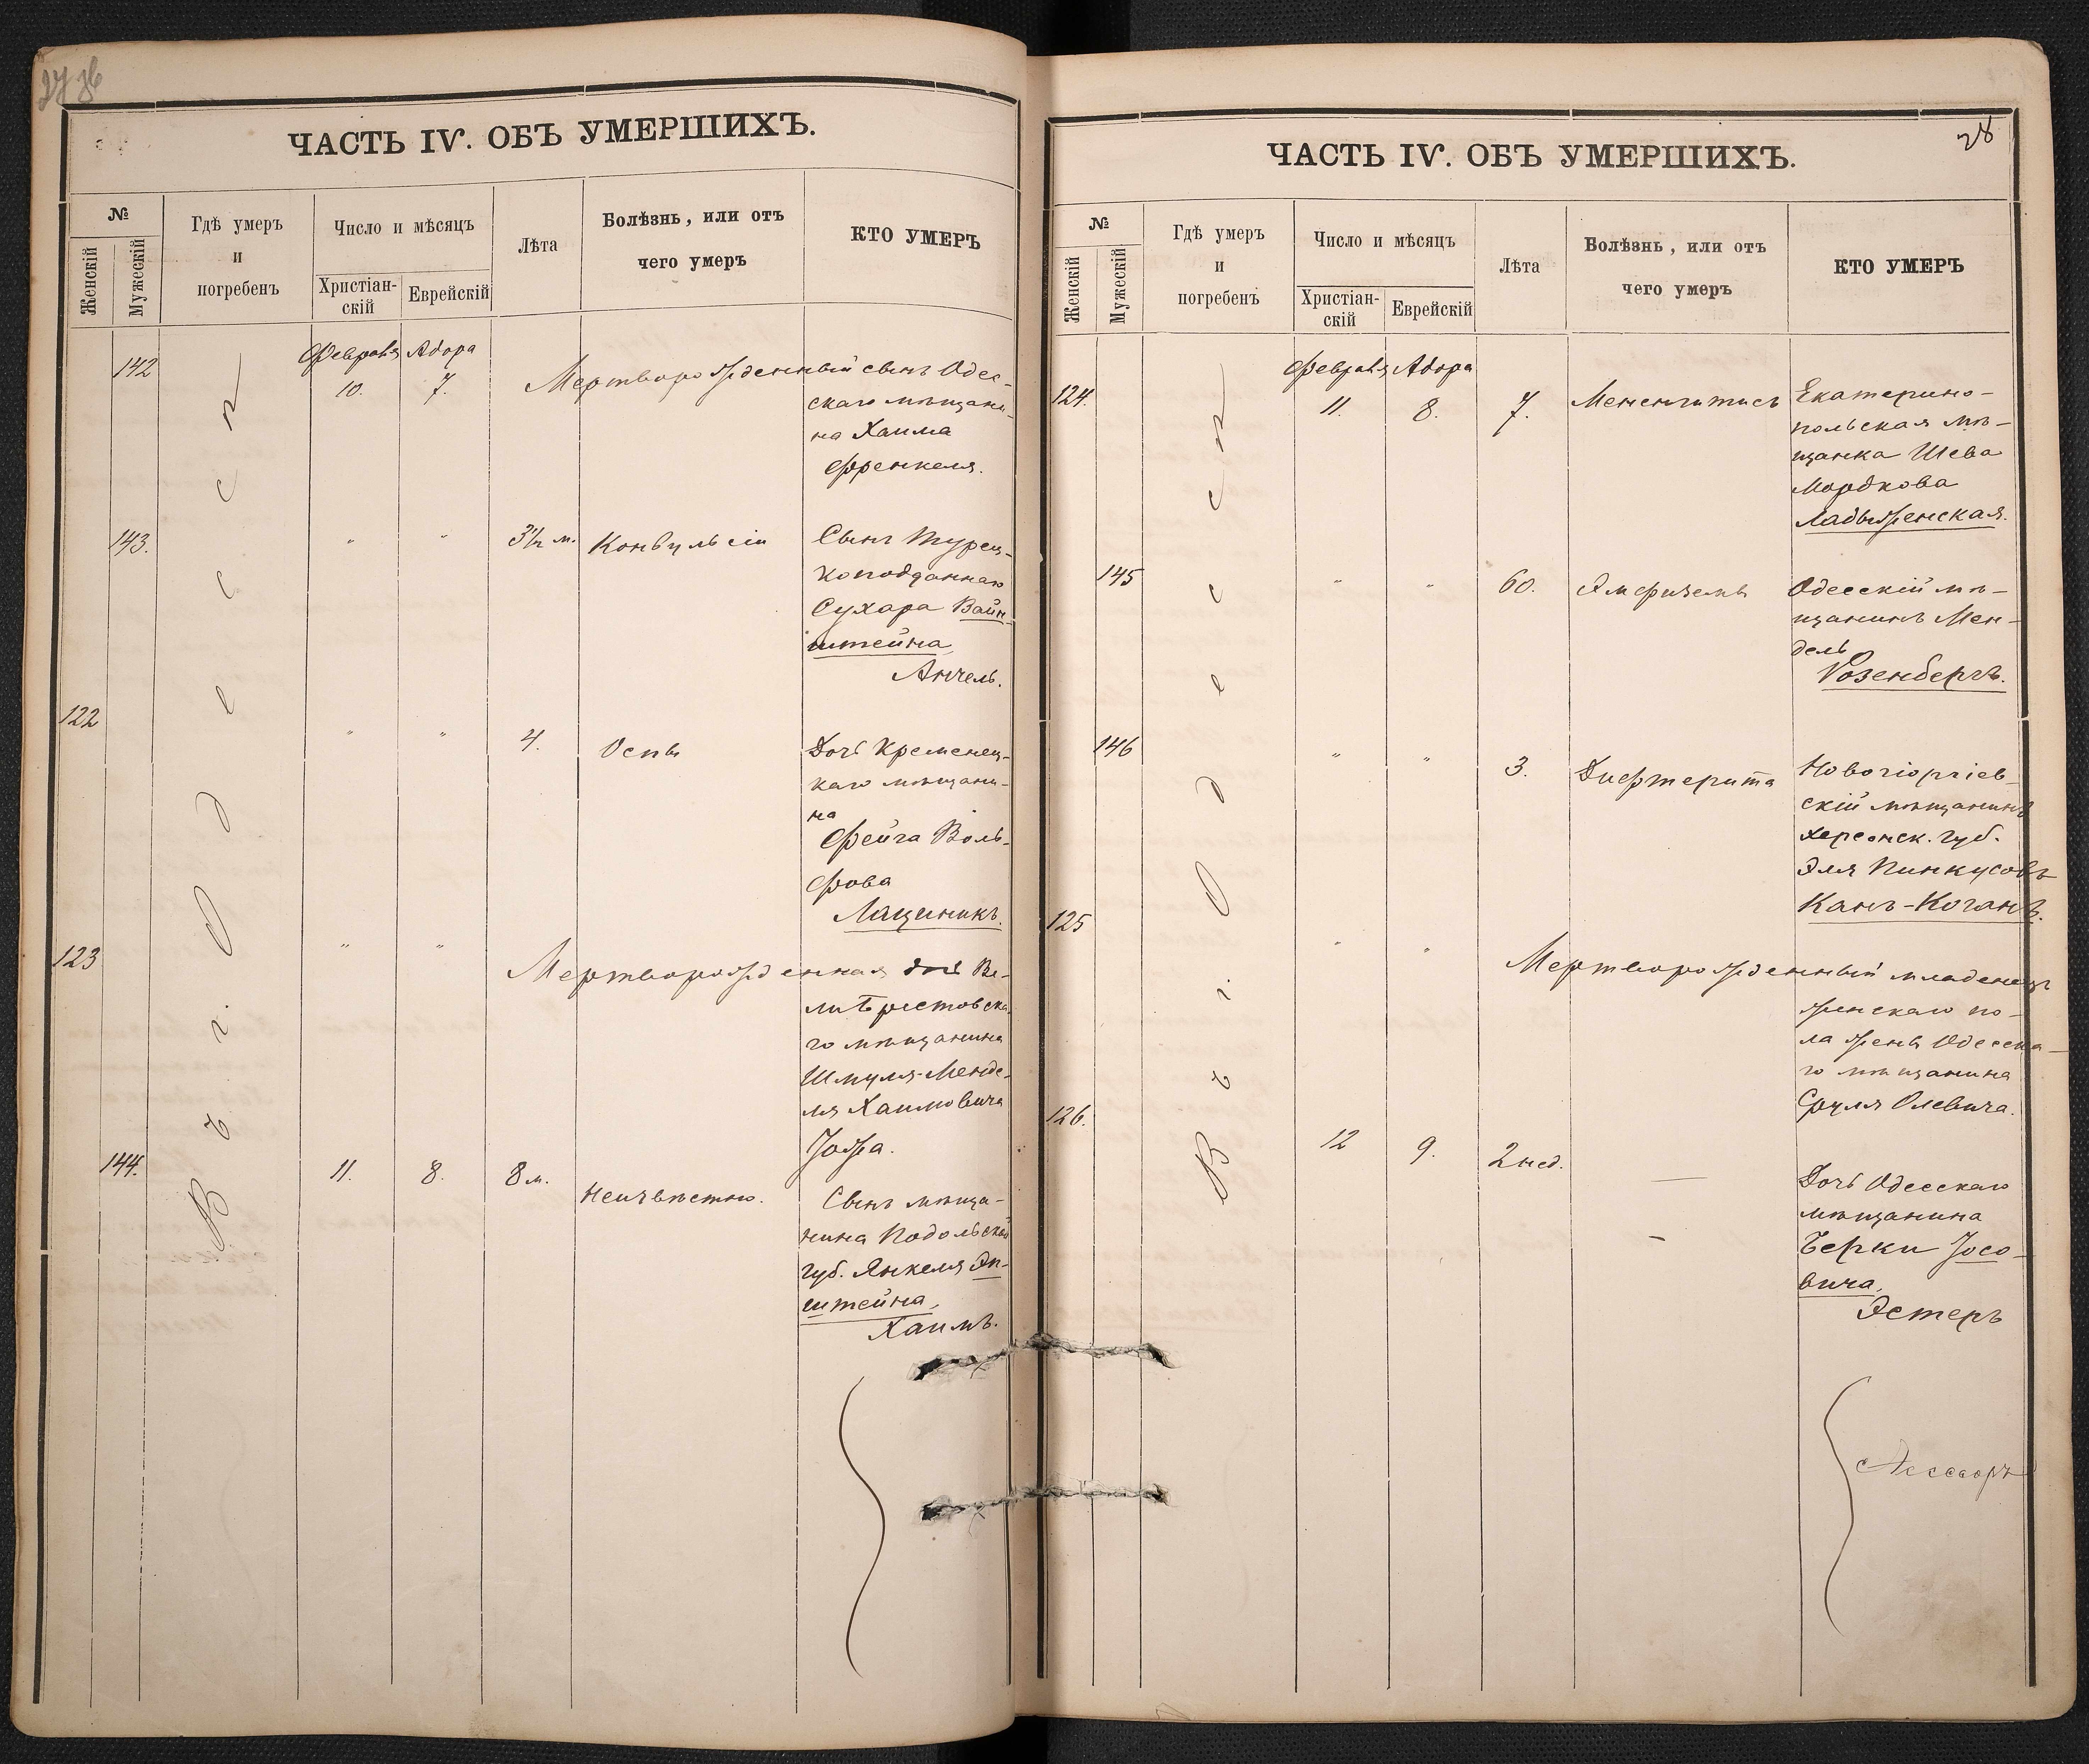 ЧАСТЬ IV. ОБЪ УМЕРШИХЪ.
№
Женскій
Мужескій
Гдѣ умеръ
и
погребенъ
Число и мѣсяцъ
Христіан-
скій
Еврейскій
Лѣта
Болѣзнь, или отъ
чего умеръ
КТО УМЕРЪ
Въ г. Одессѣ
Февраля Адора
142 10. 7. Мертворожденный сынъ Одес-
скаго мѣщани-
на Хаима
Френкеля.
143. " " 3½ м. Конвульсіи Сынъ Турец-
коподданнаго
Сухара Вайн-
штейна,
Анчель.
122 " " 4. Оспы Дочь Кременец-
каго мѣщани-
на
Фейга Воль-
фова
Лащиникъ.
123 " " Мертворожденная дочь
го мѣщанина
Шмуля-Менде-
ля Хаимовича
144. 11. 8. 8 м. Неизвѣстно. Сынъ мѣща-
нина Подольской
губ. Янкеля Эп-
штейна,
Хаимъ.
ЧАСТЬ IV. ОБЪ УМЕРШИХЪ.
28
№
Женскій
Мужескій
Гдѣ умеръ
и
погребенъ
Число и мѣсяцъ
Христіан-
скій
Еврейскій
Лѣта
Болѣзнь, или отъ
чего умеръ
КТО УМЕРЪ
Въ г. Одессѣ
Февраля Адора
124. 11. 8. 7. Менингитисъ Екатерино-
польская мѣ-
щанка Шева
Мордкова
Ладыженская.
145 " " 60. Эмфиземы Одесскій мѣ-
щанинъ Мен-
дель
Розенбергъ.
146 " " 3. Дифтерита Новогіоргіев-
скій мѣщанинъ
Херсонск. губ.
Эля Пинкусовъ
Канъ-Коганъ.
125 " " Мертворожденный младенецъ
женскаго по-
ла жены Одесска-
го мѣщанина
Сруля Олевича.
126. 12 9. 2 нед. — Дочь Одесскаго
мѣщанина
Берки Іосо-
вича,
Эстеръ
Ассесоръ